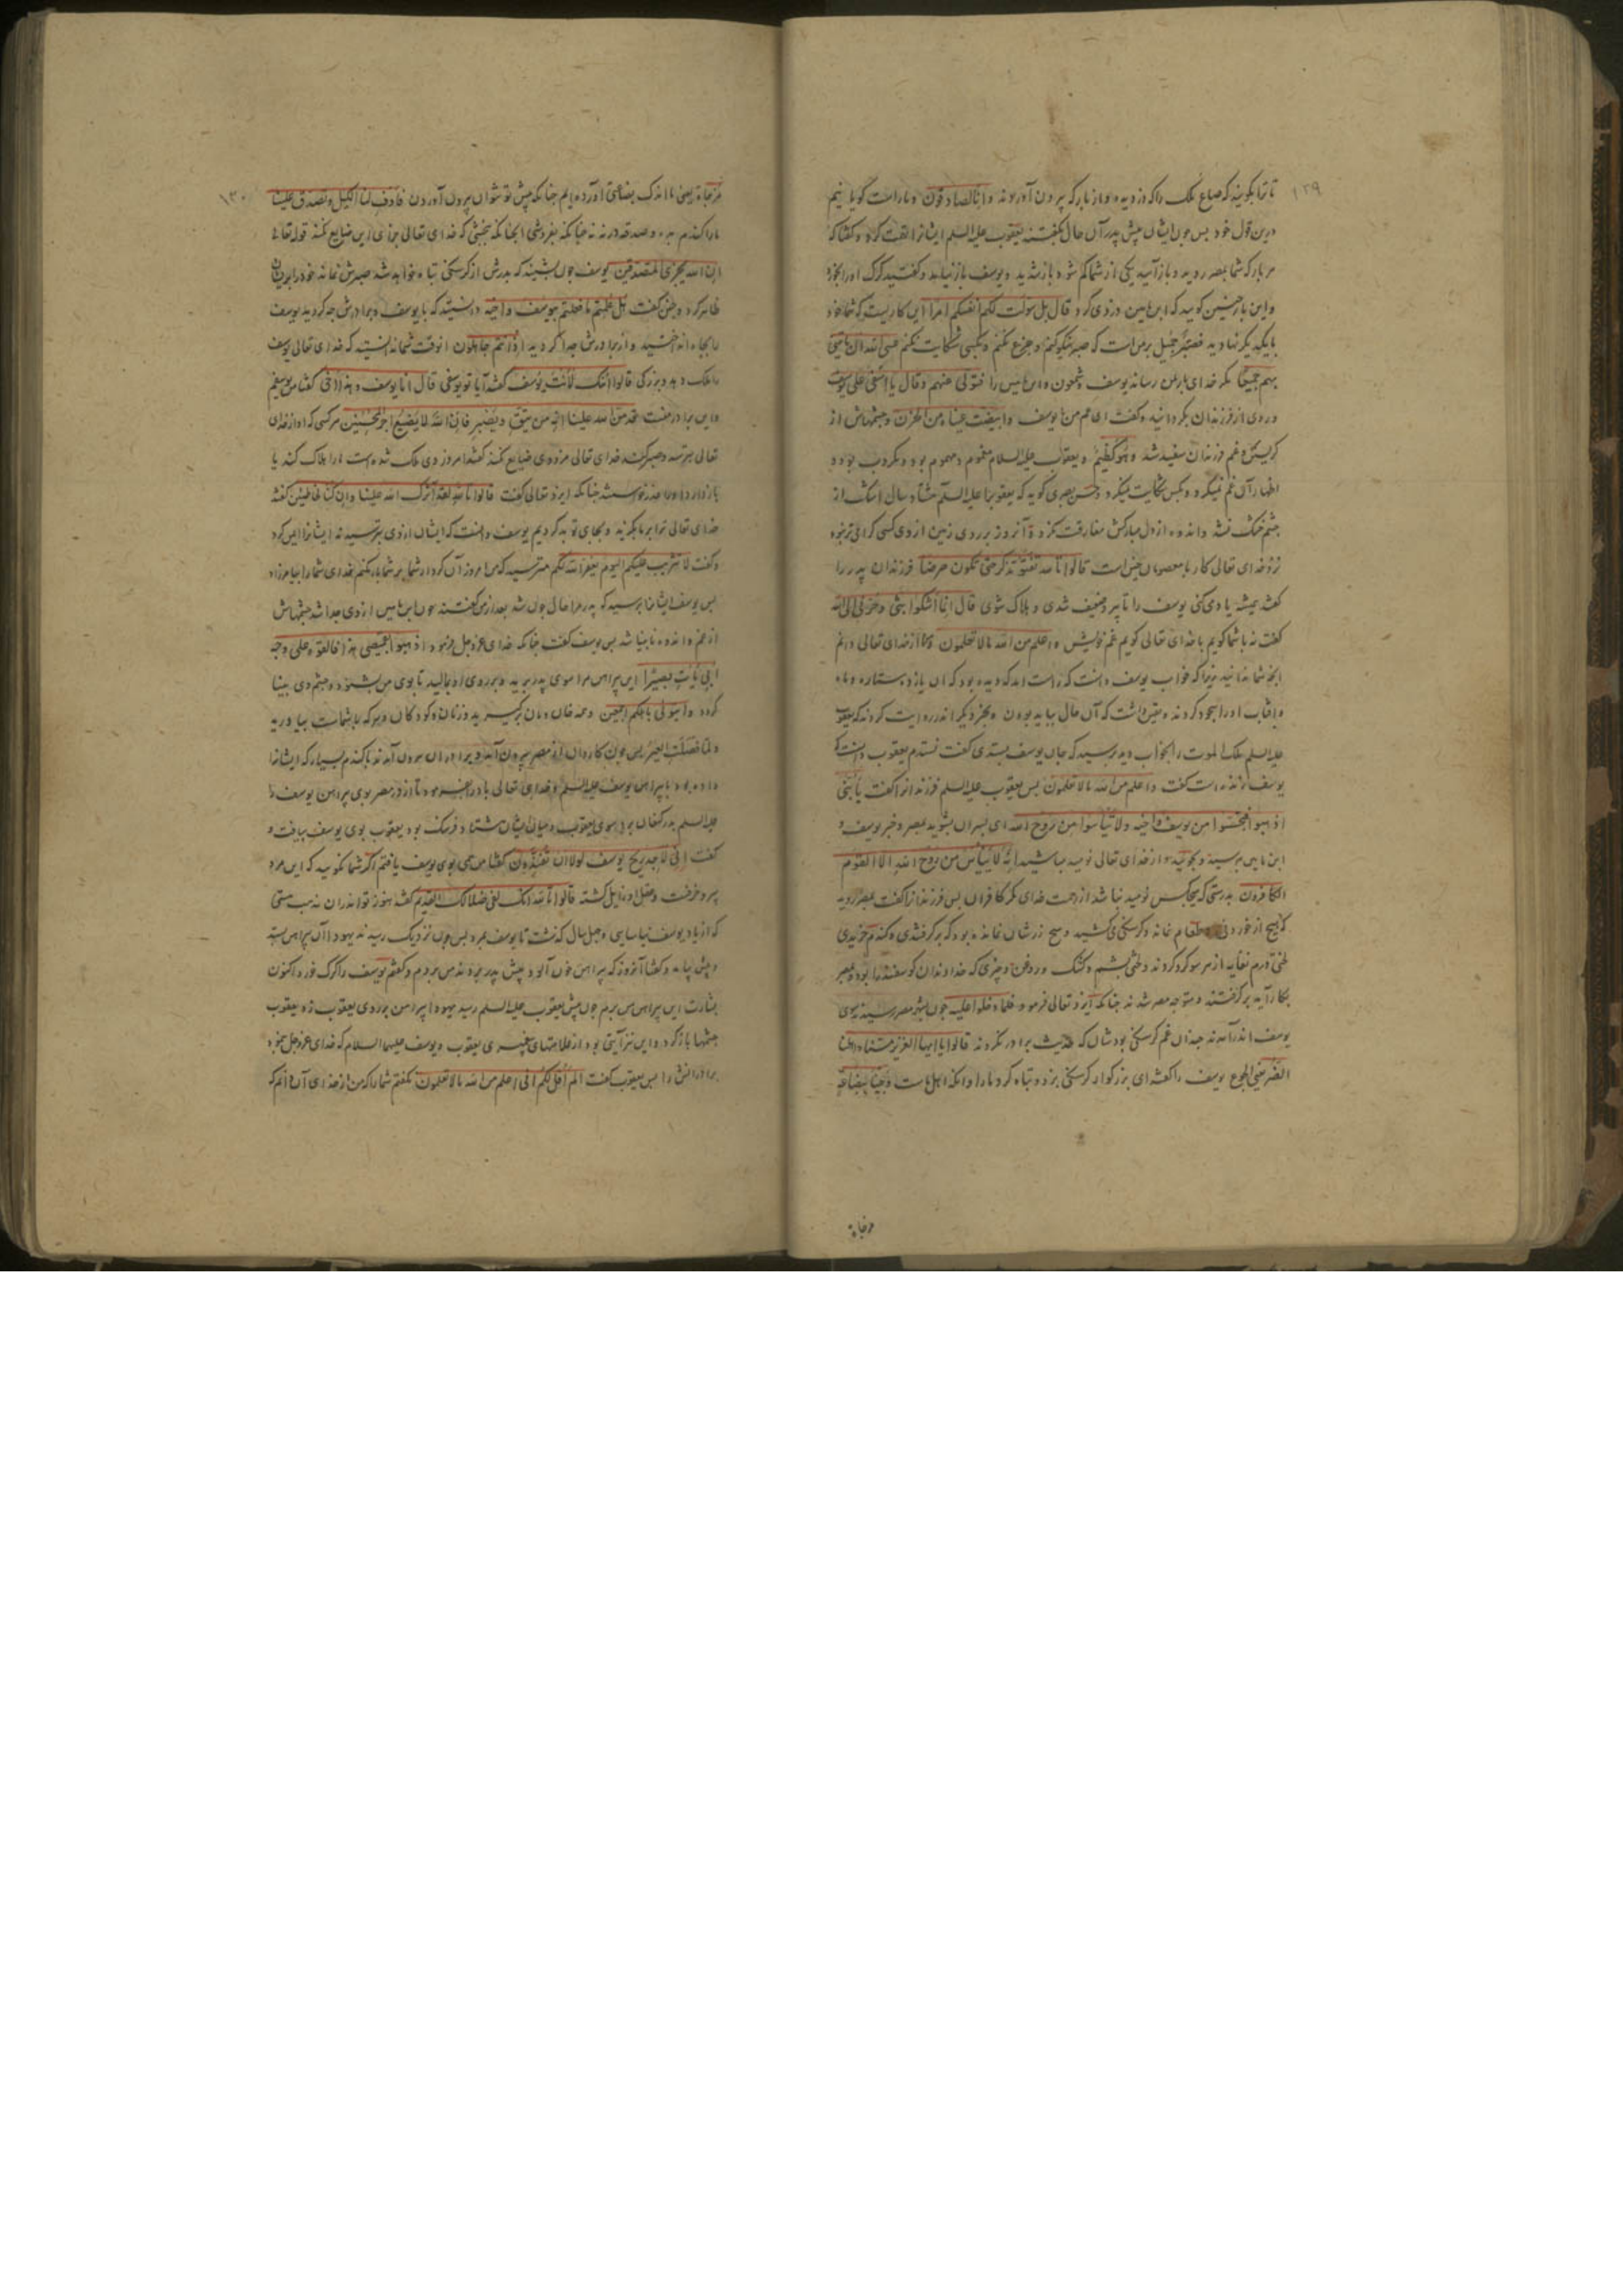 ۱۲۹
تا ترا بکویند که صاع ملک را که دزدیده بود از بار که بیرون آوردند و انا لصادقون و ما راست کویانیم
درین قول خود بس جون ایشان پیش پدر آن حال بکفتند یعقوب علیه السلم ایشانرا کفت
هر بار که شما بمصر روید و باز آیید یکی از شما کم شود باز شدید و یوسف باز نیامد و کفتید کرک اورا بخورد
و این بار جنین کویید که ابن یامین دزدی کرد قال بل سولت لکم انفسکم امرا این کاریست که شما خود
با یکدیکر نهادید فصبر جمیل بر من است که صبر نیکو کنم و جزع نکنم و بکسی شکایت نکنم عسی الله ان یاتینی
بهم جمیعا مکر خدای باز من رساند یوسف شمعون و ابن یامین را فتولی عنهم و قال یا اسفی علی یوسف
و روی از فرزندان بکردانید و کفت ای غم من یوسف وابیضت عیناه من الحزن و جشمهاش از
کریستن و غم فرزندان سفید شد و هو کظیم و یعقوب علیه السلام مغموم و مهموم بود و مکروب بود و
اظهار آن غم نمیکرد و بکس شکایت نمیکرد و حسن بصری کوید که یعقوب را علیه السلم هشتاد سال اشک از
جشم خشک نشد و اندوه از دل مبارکش مفارقت نکرد و آنروز بر روی زمین از وی کسی کرامی تر نبود
نزد خدای تعالی کار با معصومان جنین است قالوا تالله تفتؤ تذکر حتی تکون حرضا فرزندان پدر را
کفتند همیشه یاد می کنی یوسف را تا پیر و ضعیف شدی و هلاک شوی قال انما اشکوا بثی و حزنی الی الله
کفت نه با شما کویم با خدای تعالی کویم غم خویش و اعلم من الله ما لا تعلمون و من از خدای تعالی دانم
انجه شما ندانید زیرا که خواب یوسف دانست که راست امد که دیده بود که ان یازده ستاره و ماه
و افتاب اورا سجود کردند و یقین دانست که آن حال بباید بودن و بخبر دیکر اندر روایت کردند که یعقوب
علیه السلم ملک الموت را بخواب دید پرسید که جان یوسف بستدی کفت نستدم یعقوب دانست که
یوسف زنده است کفت و اعلم من الله ما لا تعلمون بس یعقوب علیه السلم فرزندانرا کفت یا بنی
اذهبوا فتحسسوا من یوسف و اخیه ولا تیأسوا من روح الله ای بسران بشوید بمصر و خبر یوسف و
ابن یامین بپرسید و بجویید و از خدای تعالی نومید مباشید انه لا ییأس من روح الله الا القوم
الکافرون بدرستی که هیجکس نومید نباشد از رحمت خدای مکر کافران بس فرزندانرا کفت بمصر روید
که هیج از خوردنی و طعام نمانده و کرسنکی می کشید و هیج زرشان نمانده بود که برکرفتندی و کندم خریدی
لختی درم نفایه از هر سو کرد کردند و لختی بشم و کشک و روغن و جیزی که خداوندان کوسفند را بود و بمصر
بکار آید برکرفتند و متوجه مصر شدند جنانکه ایزد تعالی فرمود فلما دخلوا علیه جون بشهر مصر رسیدند بسوی
یوسف اندر آمدند جندان غم کرسنکی بودشان که حدیث برادر نکردند قالوا یا ایها العزیز مسنا و اهلنا
الضر یعنی الجوع یوسف را کفتند ای بزرکوار کرسنکی بزد و تباه کرد ما را و انکه اهل ماست و جئنا ببضاعة
مزجاة
۱۳۰
مزجاة یعنی ما اندک بضاعتی آورده ایم جنانکه پیش تو نتوان بیرون آوردن فاوف لنا الکیل و تصدق علینا
ما را کندم بده و صدقه جنانکه نفروشی انجنانکه بخشی که خدای تعالی مزد این ضایع نکند قوله تعالی
ان الله یجزی المتصدقین یوسف جون بشنید که پدرش از کرسنکی تباه خواهد شد صبرش نماند خود را بدیشان
ظاهر کرد و جنین کفت هل علمتم ما فعلتم بیوسف و اخیه دانستید که با یوسف و برادرش جه کردید یوسف
را بجاه انداختید و از برادرش جدا کردید اذ انتم جاهلون انوقت شما ندانستید که خدای تعالی یوسف
را ملک دهد و بزرکی قالوا أئنک لانت یوسف کفتند آیا تو یوسفی قال انا یوسف و هذا اخی کفتا من یوسفم
و این برادر منست قد من الله علینا انه من یتق و یصبر فان الله لا یضیع اجر المحسنین هر کسی که او از خدای
تعالی بترسد و صبر کند خدای تعالی مزد وی ضایع نکند کفتند امروز وی ملک شده است ما را هلاک کند یا
باز دارد و اورا عذر خواستند جنانکه ایزد تعالی کفت قالوا تالله لقد آثرک الله علینا و ان کنا لخاطئین کفتند
خدای تعالی ترا بر ما بکزید و بجای تو بد کردیم یوسف دانست که ایشان از وی بترسیدند ایشانرا ایمن کرد
و کفت لا تثریب علیکم الیوم یغفر الله لکم مترسید که من امروز آن کردار شما بر شما یاد نکنم خدای شما را بیامرزاد
بس یوسف ایشانرا بپرسید که پدر مرا حال جون شد بعد از من کفتند جون ابن یامین از وی جدا شد جشمهاش
از غم و اندوه نابینا شد بس یوسف کفت جنانکه خدای عز و جل فرمود اذهبوا بقمیصی هذا فالقوه علی وجه
ابی یأت بصیرا این پیراهن مرا سوی پدر برید و بر روی او بمالید تا بوی من بشنود و جشم وی بینا
کردد و اتونی باهلکم اجمعین و همه خان و مان برکیرید و زنان و کودکان و هر که با شماست بیاورید
و لما فصلت العیر بس جون کاروان از مصر بیرون آمد و برادران بیرون آمدند با کندم بسیار که ایشانرا
داده بود با پیراهن یوسف علیه السلم و خدای تعالی باد را بفرمود تا از در مصر بوی پیراهن یوسف را
علیه السلم بدر کنعان برد بسوی یعقوب و میان ایشان هشتاد فرسنک بود یعقوب بوی یوسف بیافت و
کفت انی لاجد ریح یوسف لولا ان تفندون کفتا من همی بوی یوسف یافتم اکر شما نکویید که این مرد
پیر و خرفست و عقل او زایل کشته قالوا تالله انک لفی ضلالک القدیم کفتند هنوز تو اندران مذهب هستی
که از یاد یوسف نیاسایی و جهل سال که کذشت تا یوسف بمرد بس جون نزدیک رسیدند یهودا آن پیراهن بستد
و پیش بیامد و کفتا آنروز که پیراهن خون آلود پیش پدر بردند من بردم و کفتم یوسف را کرک خورد و اکنون
بشارت این پیراهن من برم جون پیش یعقوب علیه السلم رسید یهودا پیراهن بر روی یعقوب زد یعقوب
جشمها باز کرد و این نیز آیتی بود از علامتهای پیغمبری یعقوب و یوسف علیهما السلام که خدای عز و جل بنمود
برادرانش را بس یعقوب کفت الم أقل لکم انی اعلم من الله ما لا تعلمون نکفتم شما را که من از خدای آن دانم که